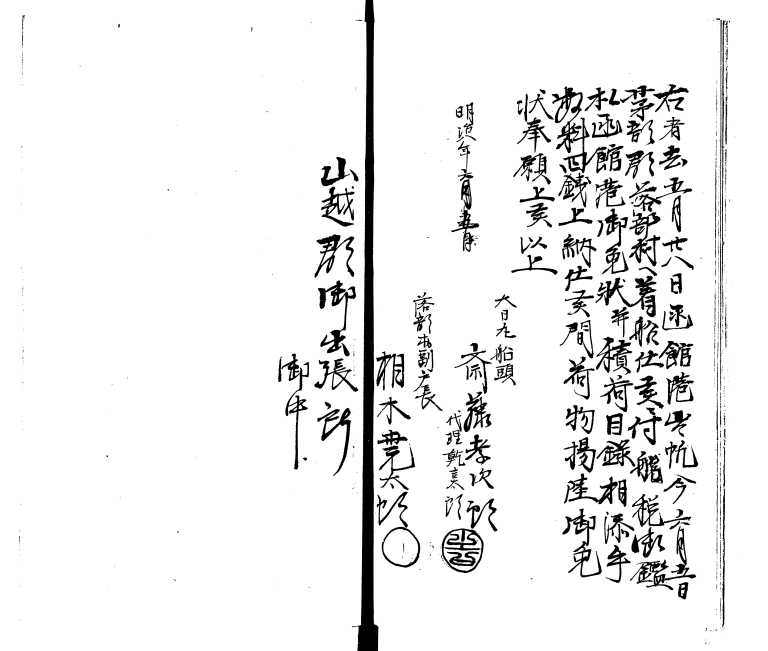 右者去五月廿八日函館港出帆今六月五日
茅部郡落部村へ着船仕候付船税御鑑
札函館港御免状并積荷目録相添手
数料四銭上納仕候間荷物揚陸御免
状奉願上候以上
明治 年六月五日
大日丸船頭
斎藤孝次郎
代理乾 郎
落部村副戸長
相木 太郎
山越郡御出張所
御中